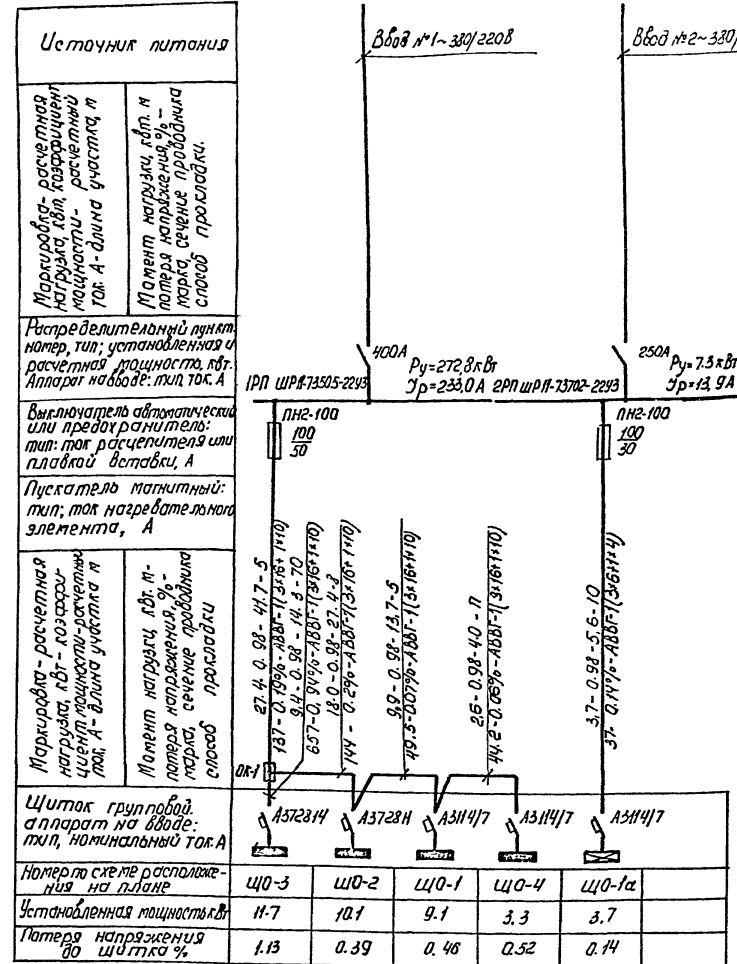 Источник питания
Ввод №1~380/220В
Ввод №2~380/
Маркировка- расчетная
нагрузка, квт, коэффициент
мощности- расчетный
ток. А-длина участка, м
Момент нагрузки, квт. м
потеря напряжения, % –
марка, сечение проводника
способ прокладки.
Распределительный пункт
номер, тип; установленная и
расчетная мощность, квт.
Аппарат на вводе: тип, ток, А
400А
Ру=272,8кВт
Jр=233,0А
1РП ШР11-73505-22У3
250А
Ру=7.3кВт
Jр=13,9А
2РП ШР11-73702-22У3
Выключатель автоматический
или предохранитель:
тип: ток расцепителя или
плавкой вставки, А
ПН2-100
100
50
ПН2-100
100
30
Пускатель магнитный:
тип; ток нагревательного
элемента, А
Маркировка- расчетная
нагрузка, кВт- коэффи-
циент мощности-расчетный
ток, А- длина участка м
Момент нагрузки, кВт. м-
потеря напряжения, % –
марка, сечение проводника
способ прокладки
27.4- 0.98- 41.7-5
137- 0.19%-АВВГ-1(3×16+1×10)
9.4- 0.98 - 14.3 -70
657-0,94%-АВВГ-1(3×16+1×10)
18.0-0.98-27.4-8
144 - 0.2%-АВВГ-1(3×16+1×10)
9,9- 0.98-13.7-5
49.5-0.07%-АВВГ-1(3×16+1×10)
2.6- 0.98-4.0-11
44.2-0.06%-АВВГ-1(3×16+1×10)
3.7- 0.98-5,6-10
37-0.14%-АВВГ-1(3×6+1×4)
ОК-1
Щиток групповой.
аппарат на вводе:
тип, номинальный ток. А
А3728 14
А3728 Н
А3114/7
А3114/7
А3114/7
Номер по схеме расположе-
ния на плане
ЩО-3
ЩО-2
ЩО-1
ЩО-4
ЩО-1а
Установленная мощность кВт
11.7
10.1
9.1
3.3
3.7
Потеря напряжения
до щитка %
1.13
0.39
0.46
0.52
0.14